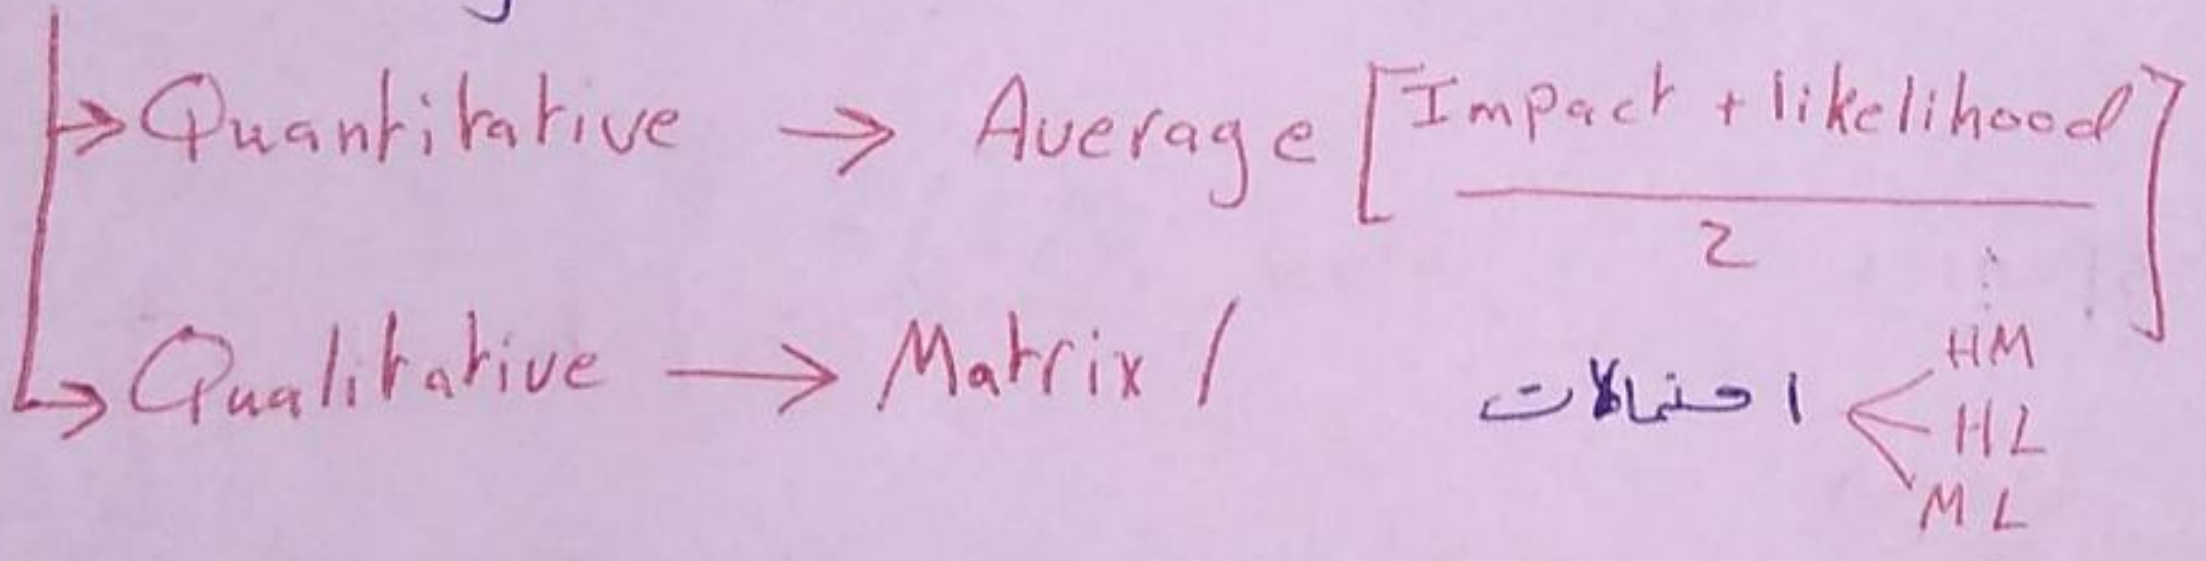 → Quantitative → Average [Impact + likelihood / 2]
→ Qualitative → Matrix /
احتمالات
HM
HL
ML